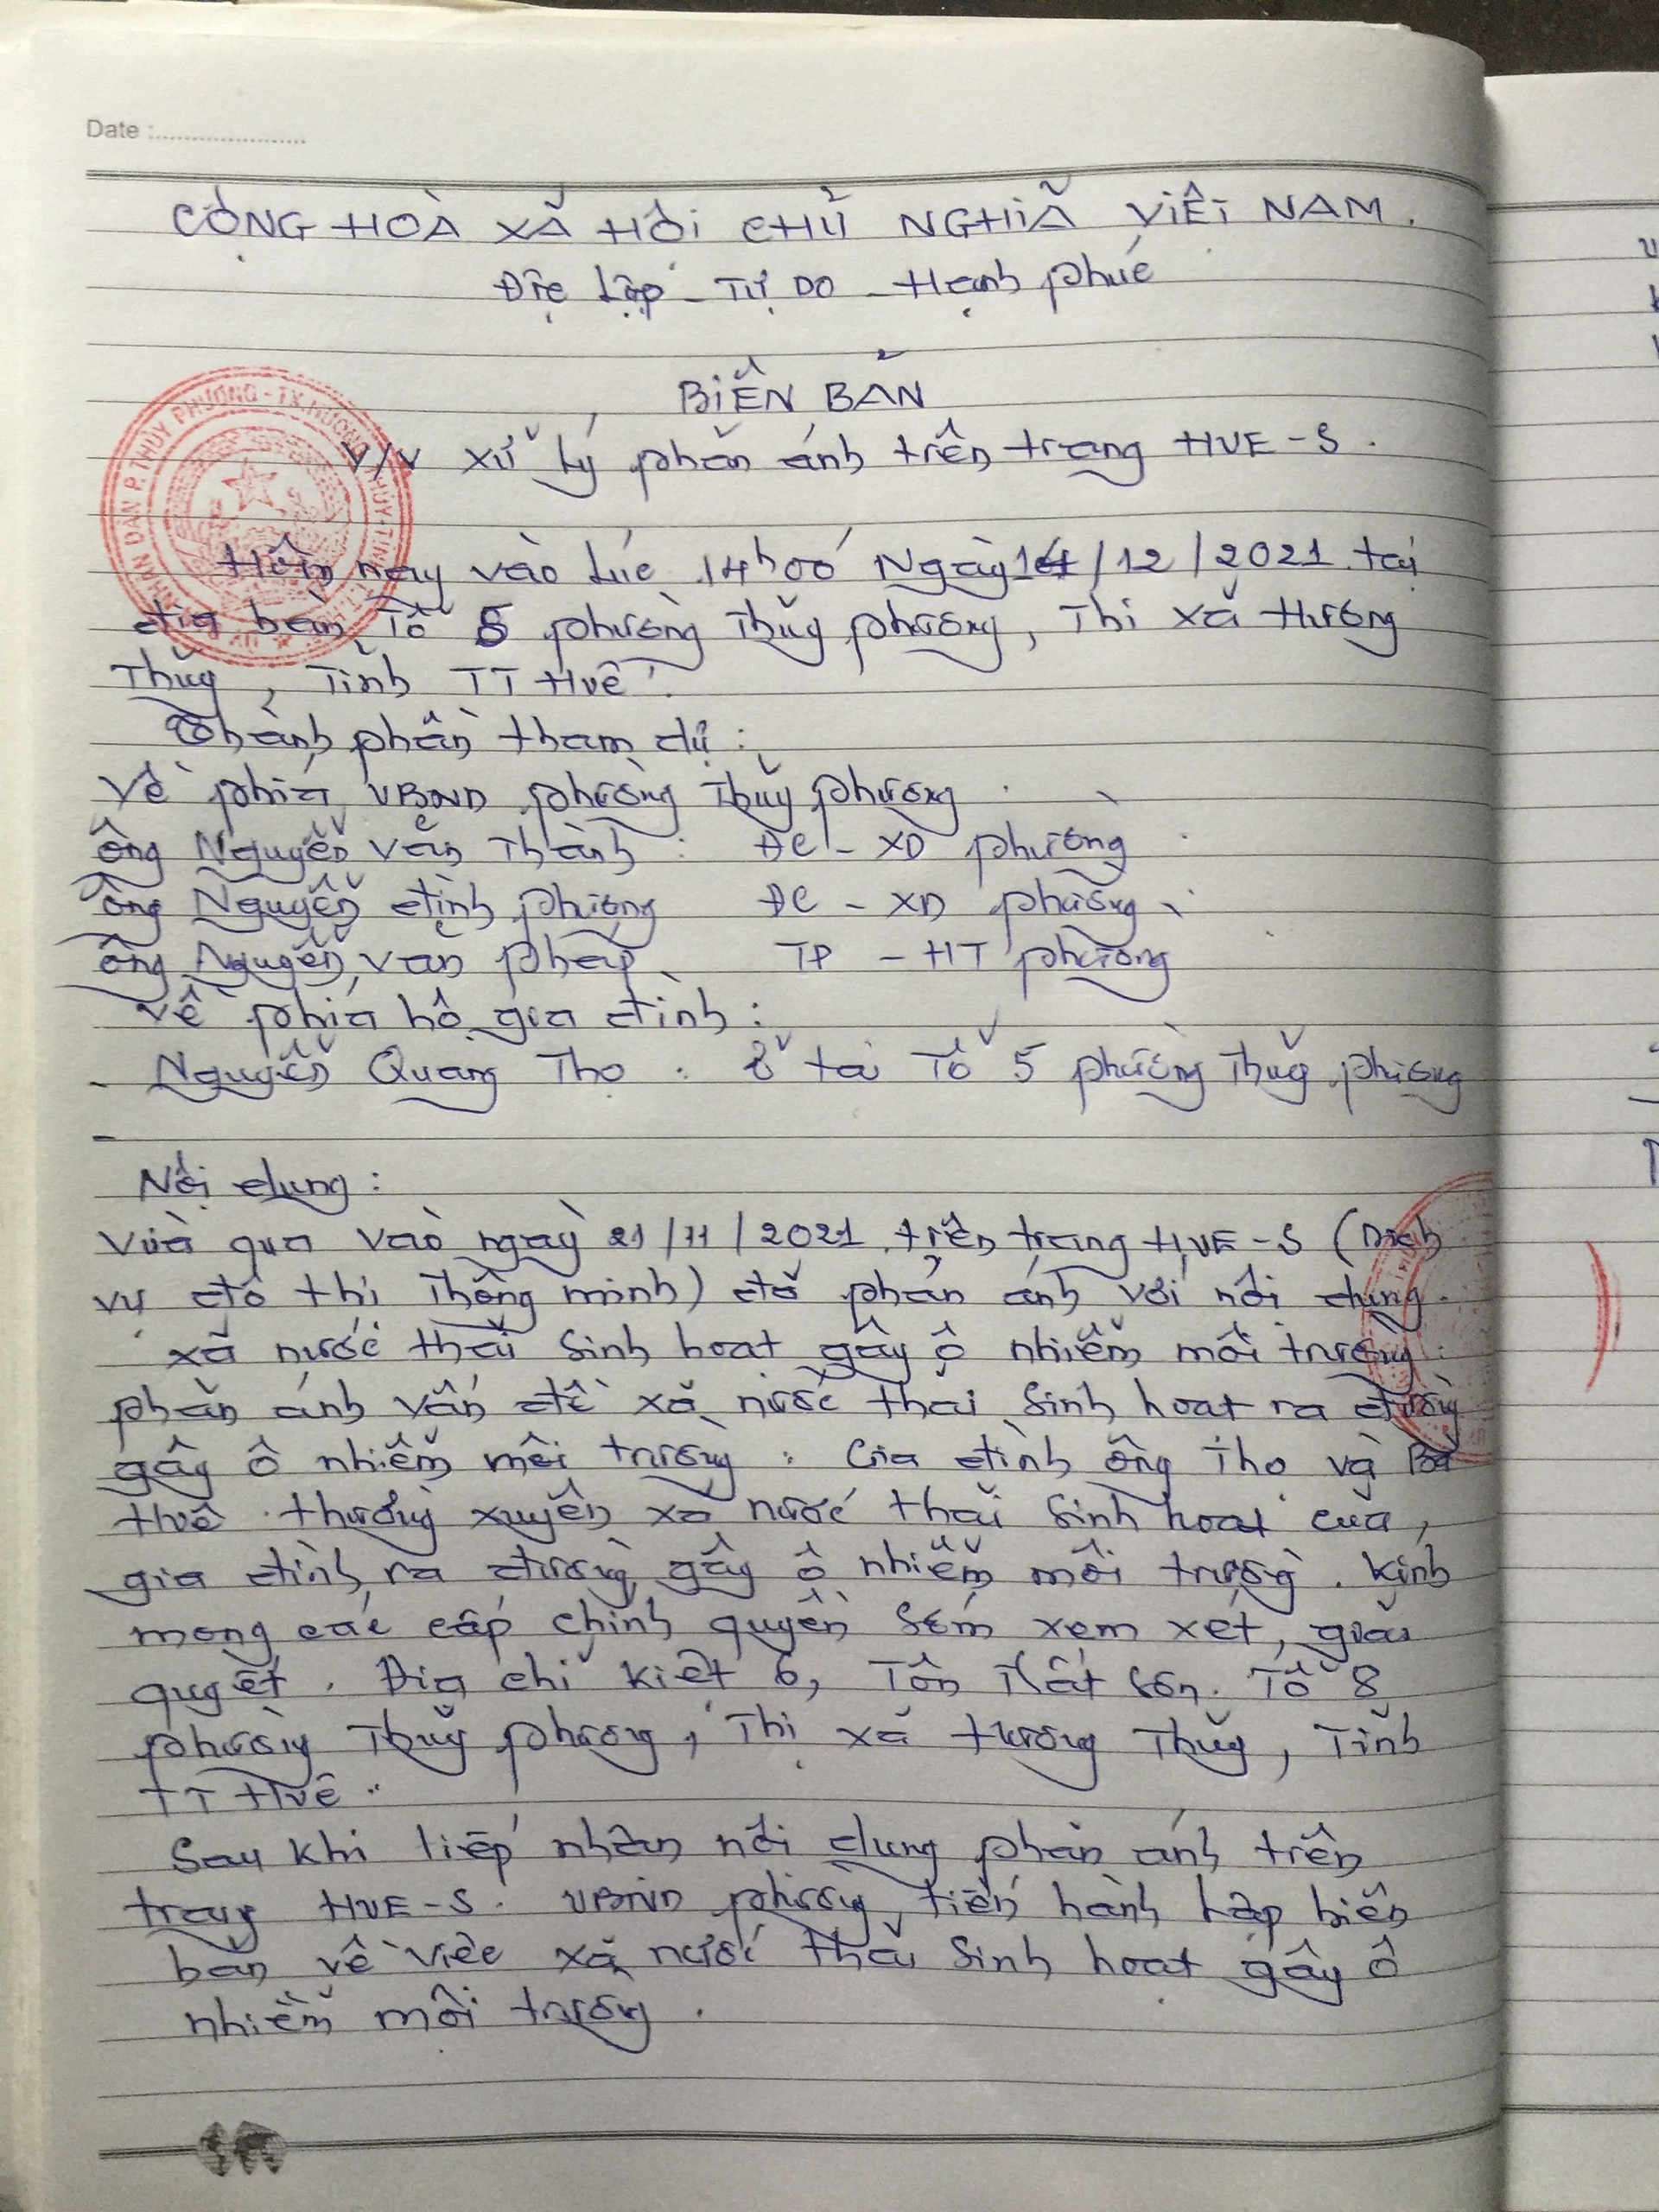 Date :
CỘNG HOÀ XÃ HỘI CHỦ NGHĨA VIỆT NAM.
Độc Lập - Tự Do - Hạnh phúc
BIÊN BẢN
V/v xử lý phản ánh trên trang HUE-S.
Hôm nay vào lúc 14h00 Ngày 14/12/2021. tại
địa bàn Tổ 5 phường Thủy phương, Thị xã Hương
Thủy, Tỉnh TT Huế.
Thành phần tham dự:
Về phía UBND phường Thủy phương
ông Nguyễn Văn Thành : ĐC - XD phường
ông Nguyễn đình phương ĐC - XD phường
ông Nguyễn văn pháp TP - HT phường
Về phía hộ gia đình:
- Nguyễn Quang Thọ : ở tại Tổ 5 phường Thủy phương
-
Nội dung:
Vừa qua vào ngày 21/11/2021. trên trang HUE-S (Dịch
vụ đô thị Thông minh) đã phản ánh với nội dung.
xã nước thải sinh hoạt gây ô nhiễm môi trường.
phản ánh vấn đề xã nước thải sinh hoạt ra đường
gây ô nhiễm môi trường : Gia đình ông Thọ và Bà
Huê thường xuyên xã nước thải sinh hoạt của
gia đình ra đường gây ô nhiễm môi trường. Kính
mong các cấp chính quyền sớm xem xét, giải
quyết. Địa chỉ kiệt 6, Tôn Thất Sơn. Tổ 8
phường Thủy phương, Thị xã Hương Thủy, Tỉnh
TT Huế.
Sau khi tiếp nhận nội dung phản ánh trên
trang HUE-S. UBND phường tiến hành lập biên
bản về việc xã nước thải sinh hoạt gây ô
nhiễm môi trường.